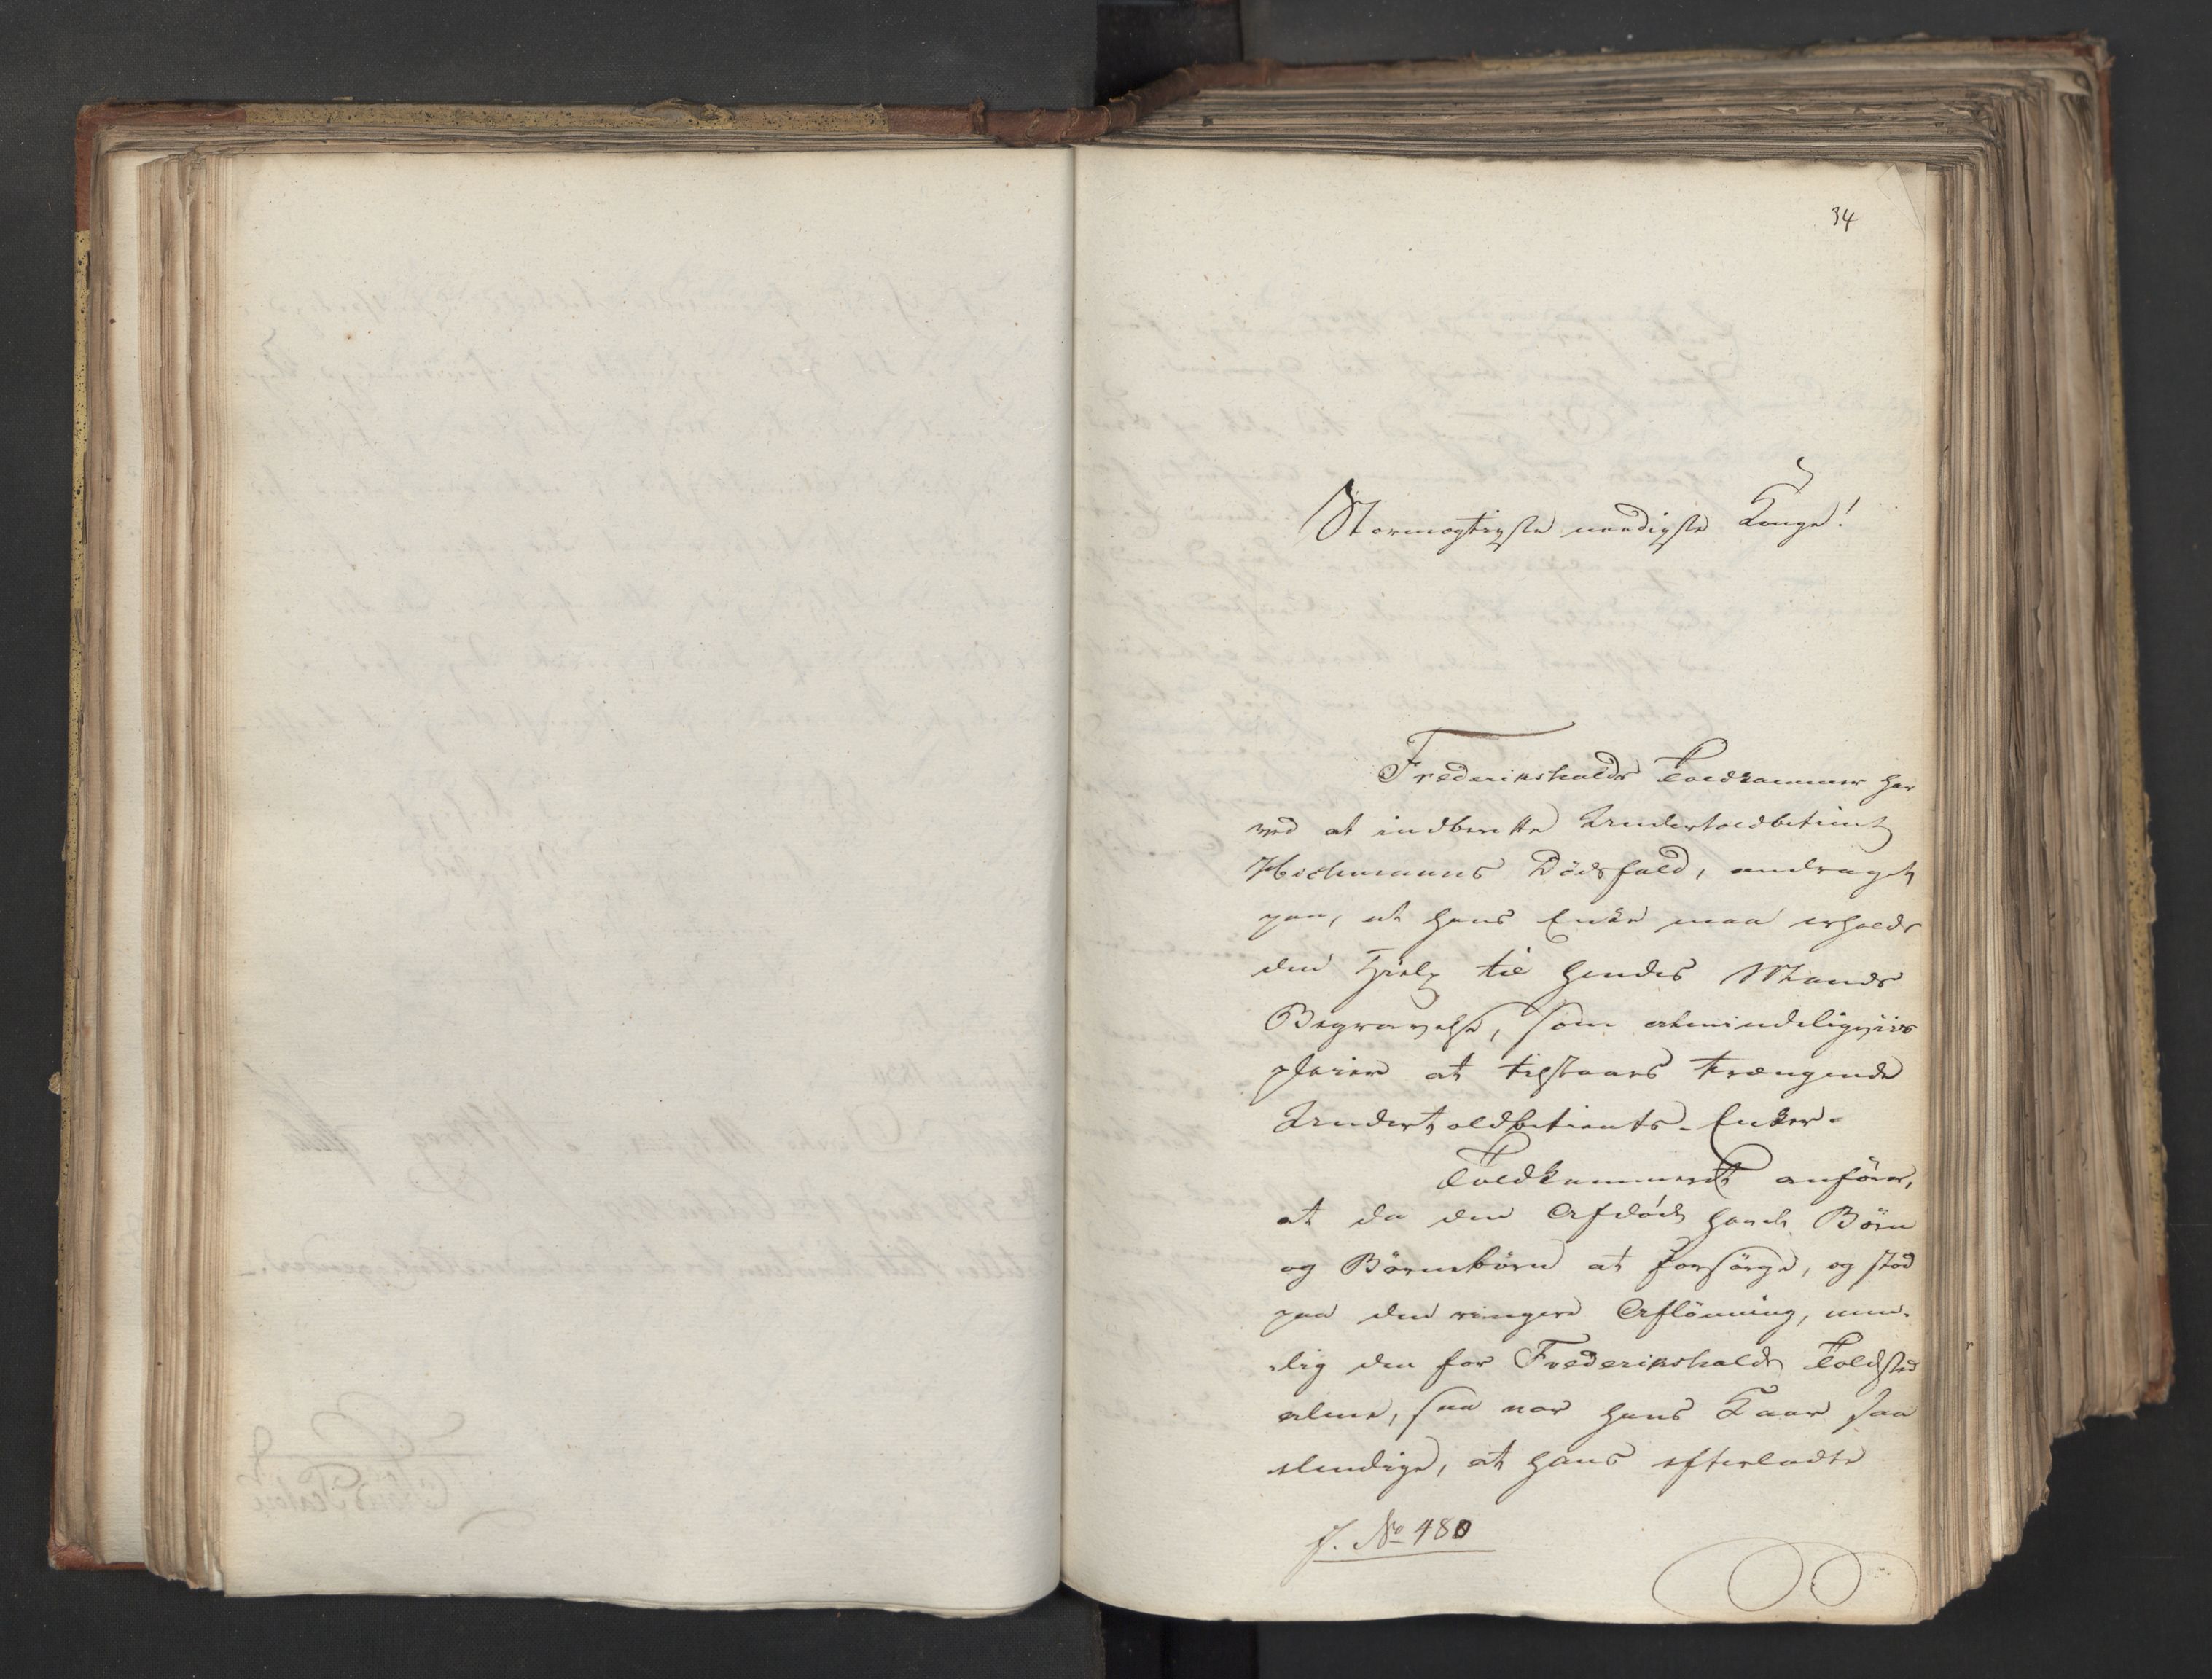 34
Stormægtigste naadigste Konge!
Frederikshalds Toldkammer har
ved at indberette Undertoldbetient
Hochmanns Dödsfald, andraget
paa, at hans Enke maa erholde
den Hjelp til hendes Mands
Begravelse, som almindeligviis
pleier at tilstaaes trængende
Undertoldbetients-Enker.
Toldkammeret anförer,
at da den Afdöde havde Börn
og Börnebörn at forsörge, og stod
paa den ringere Aflönning, nem-
lig den for Frederikshalds Toldsted
alene, saa var hans Kaar saa
elendige, at hans efterladte
J. No 480